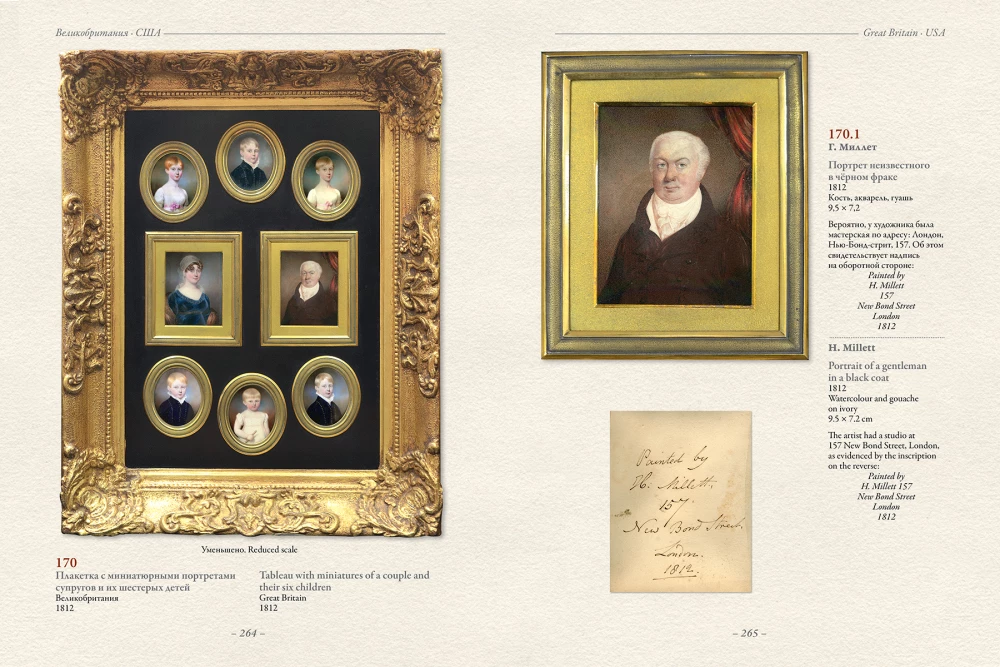 Великобритания · США
Уменьшено. Reduced scale
170
Плакетка с миниатюрными портретами
супругов и их шестерых детей
Великобритания
1812
Tableau with miniatures of a couple and
their six children
Great Britain
1812
– 264 –
Great Britain · USA
170.1
Г. Миллет
Портрет неизвестного
в чёрном фраке
1812
Кость, акварель, гуашь
9,5 × 7,2
Вероятно, у художника была
мастерская по адресу: Лондон,
Нью-Бонд-стрит, 157. Об этом
свидетельствует надпись
на оборотной стороне:
Painted by
H. Millett
157
New Bond Street
London
1812
H. Millett
Portrait of a gentleman
in a black coat
1812
Watercolour and gouache
on ivory
9.5 × 7.2 cm
The artist had a studio at
157 New Bond Street, London,
as evidenced by the inscription
on the reverse:
Painted by
H. Millett 157
New Bond Street
London
1812
Painted by
H. Millett.
157.
New Bond Street
London.
1812.
– 265 –